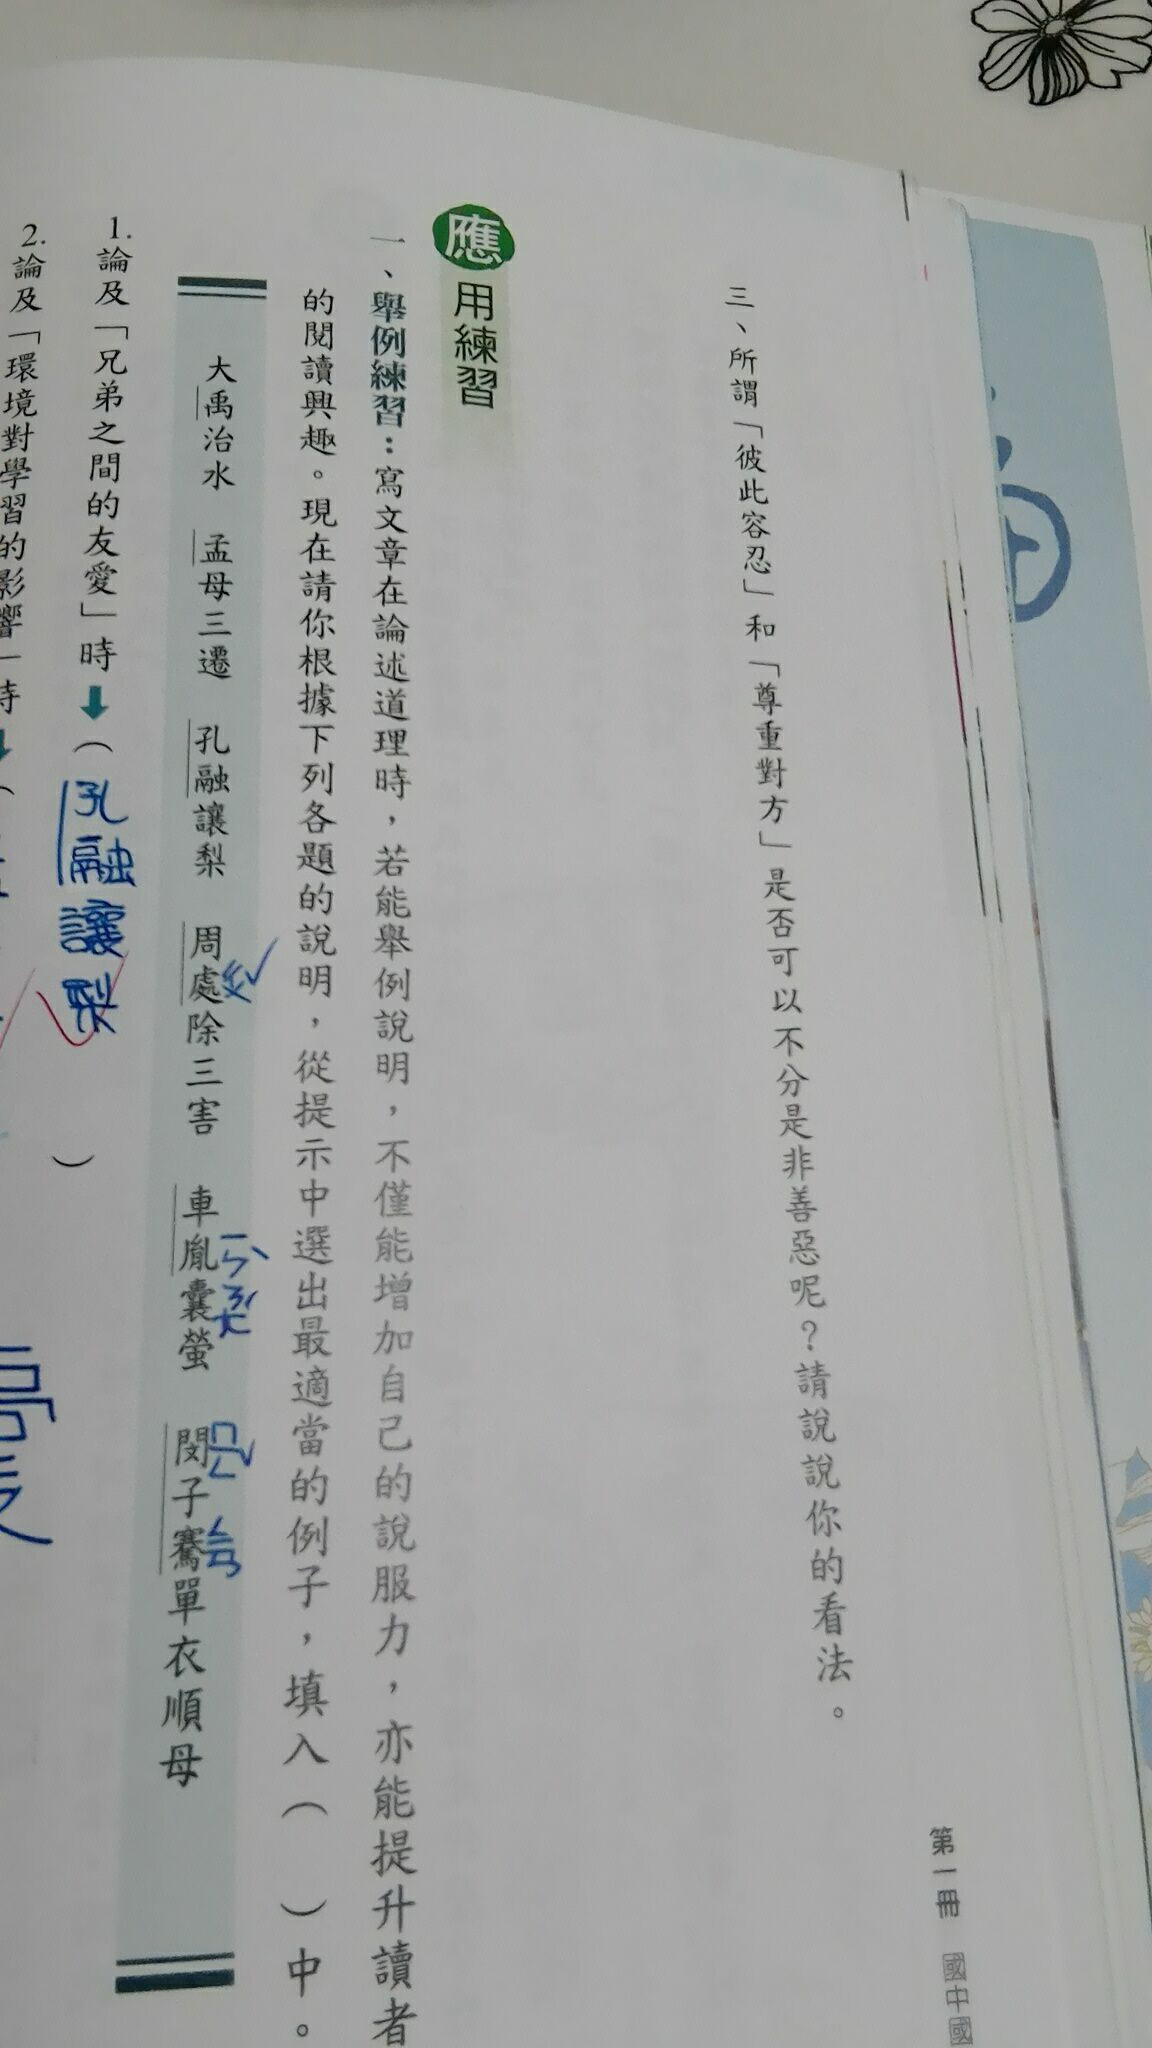 三、所謂「彼此容忍」和「尊重對方」是否可以不分是非善惡呢？請說說你的看法。
應用練習
一、舉例練習：寫文章在論述道理時，若能舉例說明，不僅能增加自己的說服力，亦能提升讀者
的閱讀興趣。現在請你根據下列各題的說明，從提示中選出最適當的例子，填入（　）中。
大禹治水　孟母三遷　孔融讓梨　周處除三害　車胤囊螢　閔子騫單衣順母
1.論及「兄弟之間的友愛」時（孔融讓梨）
2.論及「環境對學習的影響」時（
第一冊　國中國